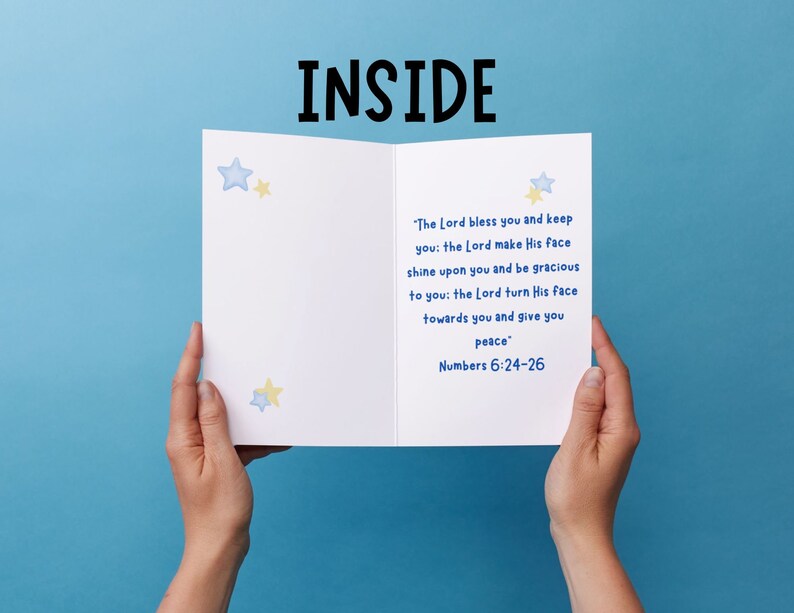 INSIDE
"The Lord bless you and keep
you; the Lord make His face
shine upon you and be gracious
to you; the Lord turn His face
towards you and give you
peace"
Numbers 6:24-26